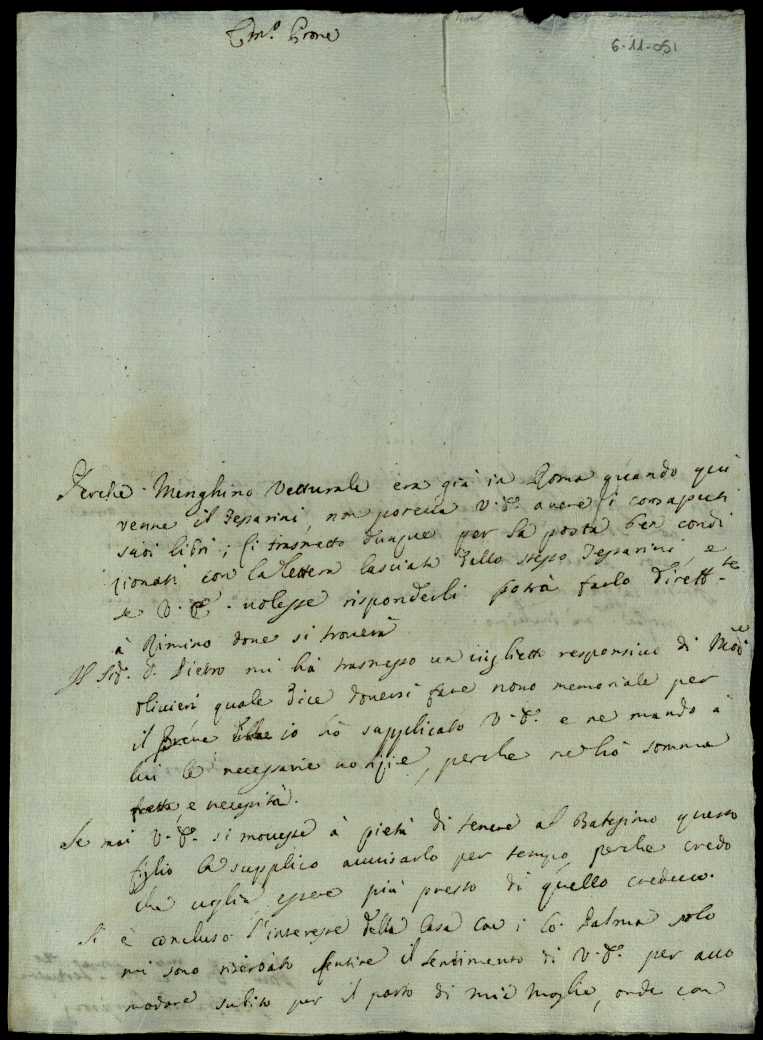 Em.º Prone
6-11-051
Perche Menghino Vetturale era già in Roma quando quì
venne il Tessarini, non poteva V. Em. avere i consaputi
suoi libri; li trasmetto dunque per la posta ben condi
zionati con la lettera lasciata dallo stesso Tessarini, e
se V. Em. volesse risponderli potrà farlo dirett.te
à Rimino dove si troverà
Il Sig.r D. Pietro mi hà trasmesso un viglietto responsivo di
Olivieri quale dice doversi fare novo memoriale per
il Breve io hò supplicato V. Em. e ne mando à
lui le necessarie notizie, perche ne hò somma
fretta, e necessità.
Se mai V. Em. si movesse à pietà di tenere al Batesimo questo
figlio la supplico avvisarlo per tempo, perche credo
che voglia essere più presto di quello credevo.
Si è concluso l'interesse della Casa con i Co. Palma solo
mi sono riserbato sentire il sentimento di V. Em. per acco
modare subito per il parto di mia Moglie, onde con